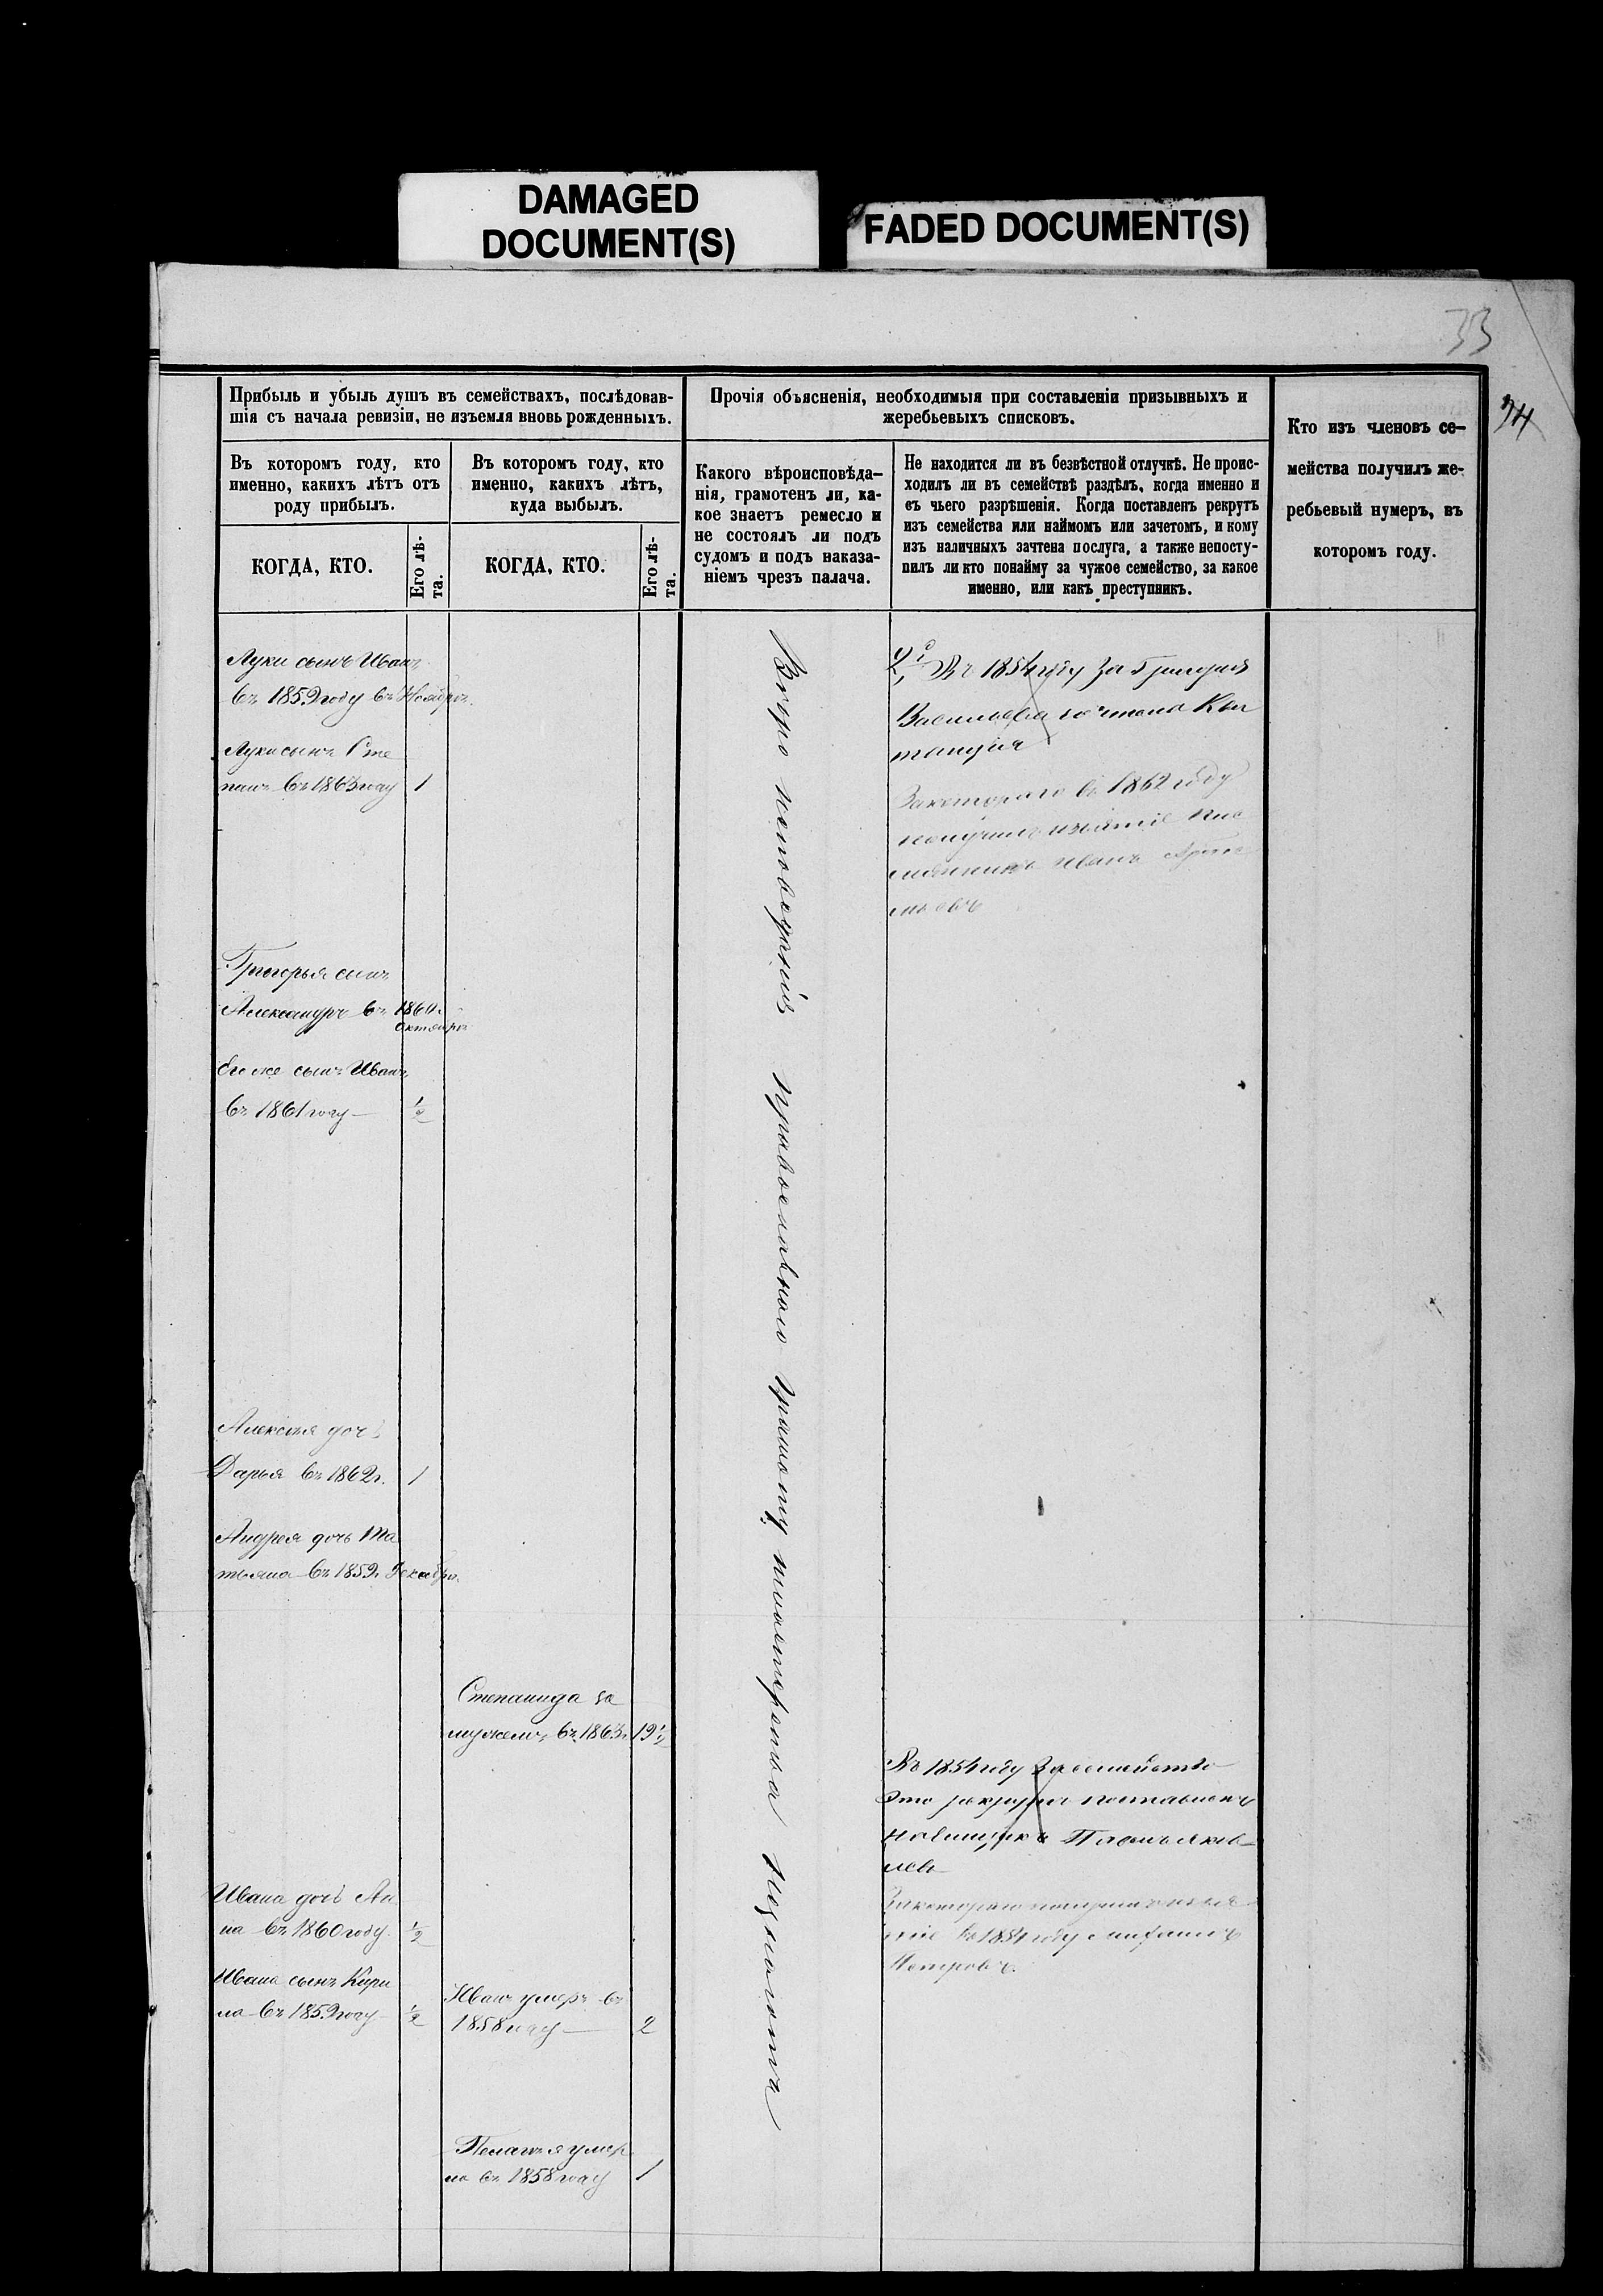 DAMAGED
DOCUMENT(S)
FADED DOCUMENT(S)
33
34
Прибыль и убыль душъ въ семействахъ, послѣдовав-
шія съ начала ревизіи, не изъемля вновь рожденныхъ.
Въ которомъ году, кто
именно, какихъ лѣтъ отъ
роду прибылъ.
КОГДА, КТО.
Его лѣ-
та.
Въ которомъ году, кто
именно, какихъ лѣтъ,
куда выбылъ.
КОГДА, КТО.
Его лѣ-
та.
Прочія объясненія, необходимыя при составленіи призывныхъ и
жеребьевыхъ списковъ.
Какого вѣроисповѣда-
нія, грамотенъ ли, ка-
кое знаетъ ремесло и
не состоялъ ли подъ
судомъ и подъ наказа-
ніемъ чрезъ палача.
Не находится ли въ безвѣстной отлучкѣ. Не проис-
ходилъ ли въ семействѣ раздѣлъ, когда именно и
съ чьего разрѣшенія. Когда поставленъ рекрутъ
изъ семейства или наймомъ или зачетомъ, и кому
изъ наличныхъ зачтена послуга, а также непосту-
пилъ ли кто понайму за чужое семейство, за какое
именно, или какъ преступникъ.
Кто изъ членовъ се-
мейства получилъ же-
ребьевый нумеръ, въ
которомъ году.
Луки сынъ Иванъ
въ 1859 году въ Ноябрѣ.
Луки сынъ Сте
панъ въ 1863 году 1
Григорья сынъ
Александръ въ 1860.
Октябрѣ
Его же сынъ Иванъ
въ 1861 году — 1/2
Алексѣя дочь
Дарья въ 1862 г. 1
Андрея дочь Та
тьяна въ 1859. Декабрѣ.
Ивана дочь Ан
на въ 1860 году 1/2
Ивана сынъ Кири
ла въ 1859 году 1/2
Степанида за
мужемъ въ 1863 г. 19 1/2
Иванъ умеръ въ
1858 году — 2
Пелагея умер
ла въ 1858 году 1
Вѣроисповѣданія православнаго грамоту мастерства незнаютъ
Въ 1854 году за Григорія
Васильева зачтена Кви
танція
За котораго въ 1862 году
получилъ изъятіе пле
мянникъ Иванъ
Въ 1854 году за семейство
это рекрутъ поставленъ
наемщикъ Яков
лев
За котораго получилъ изъя
тіе въ 1854 году
Петровъ.